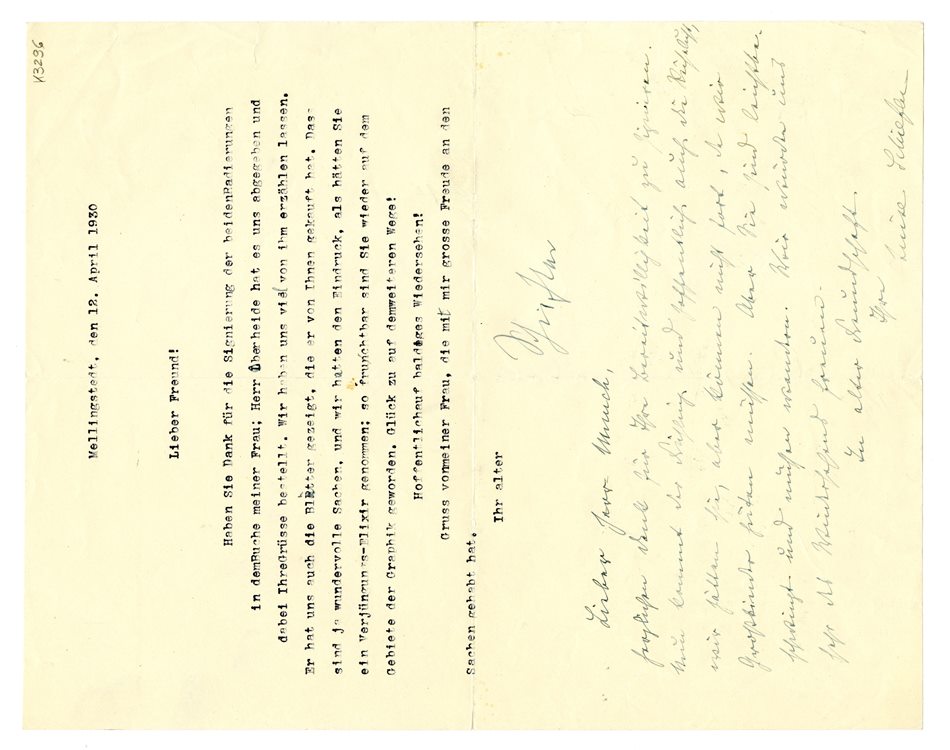 K3296
Mellingstedt, den 12. April 1930
Lieber Freund!
Haben Sie Dank für die Signierung der beidenRadierungen
in demBuche meiner Frau; Herr Überheide hat es uns abgegeben und
dabei IhreGrüsse bestellt. Wir haben uns viel von ihm erzählen lassen.
Er hat uns auch die Blätter gezeigt, die er von Ihnen gekauft hat. Das
sind ja wundervolle Sachen, und wir hatten den Eindruck, als hätten Sie
ein Verjüngungs-Elixir genommen; so fruchtbar sind Sie wieder auf dem
Gebiete der Graphik geworden. Glück zu auf demweiteren Wege!
Hoffentlichauf baldiges Wiedersehen!
Gruss vonmeiner Frau, die mit mir grosse Freude an den
Sachen gehabt hat.
Ihr alter
Schiefler
Lieber Herr Munch,
herzlichen Dank für Ihre Bereitwilligkeit zu signieren.
Nun kommt der Frühling und hoffentlich auch die
wir hätten Sie, aber können nicht fort, da wir
Großkinder hüten müssen. Aber Sie sind leichtbe-
schwingt und müssen wandern. Wir würden uns
sehr des Wiedersehens freuen.
In alter Freundschaft.
Ihre
Luise Schiefler